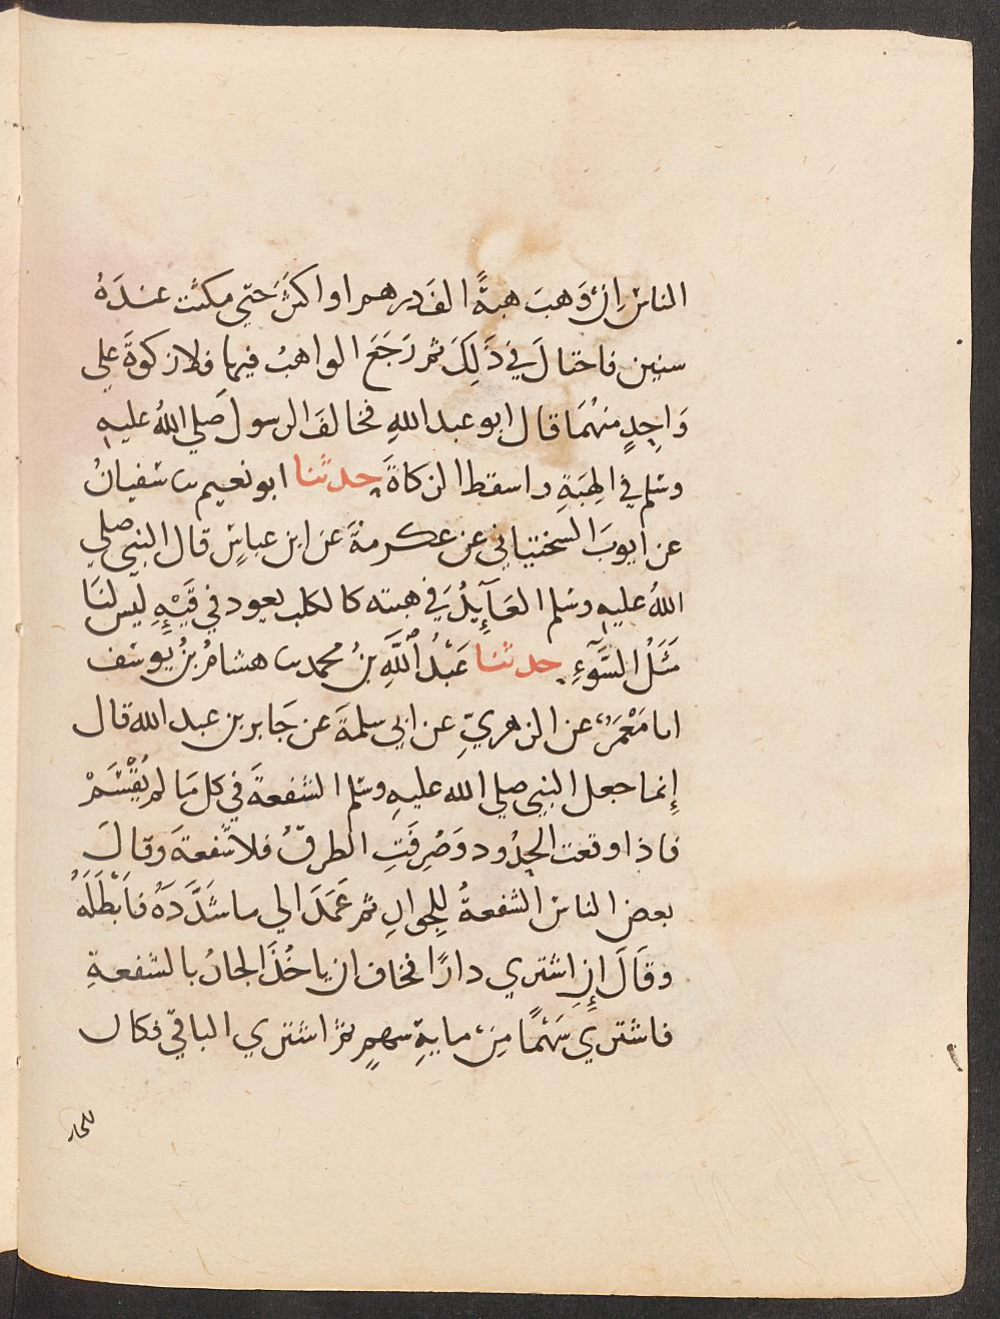 الناسِ اِنْ وَهبَ هبةً الفَ درهم او اكثرَ حتي مكثت عندَهُ
سنين فاحتالَ في ذَلِكَ ثم رَجَعَ الواهبُ فيها فلا زكوةَ علي
وَاحِدٍ منهُمَا قال ابو عبد اللهِ فخالفَ الرسولَ صَلي اللهُ عليهِ
وسَلم في الهِبَةِ واسقط الزكاةَ حدثنا ابو نعيم سا سُفيانُ
عن ايوبَ السختياني عن عكرمةَ عن ابن عباسٍ قال النبي صلي
اللهُ عليهِ وسَلم العَآيِدُ في هبته كالكلب يعود في قَيْئِهِ لَيس لنَا
مَثَلُ السَّوْءِ حدثنا عَبْدُ اللَّهِ بنُ محمد سا هشامُ بنُ يوسف
اسا مَعْمَرٌ عن الزهريِّ عن ابي سلمةَ عن جَابر بن عبد الله قال
إنما جعل النبي صلي الله عليهِ وسَلم الشفعةَ في كل مَا لم يُقْسَمْ
فاذا وقعت الحدُود وَصُرِفَتِ الطرقُ فلا شُفعةَ وقالَ
بعض الناسْ الشفعةُ لِلجوارِ ثم عَمَدَ الي ما شَدَّدَهُ فاَبْطَلَهُ
وقَالَ إنِ اشتري دارًا فخاف ان ياخُذَ الجارُ بالشفعةِ
فاشتري سَهْمًا مِنْ مايةِ سهمٍ ثمَّ اشتري الباقيَ فكان
للجار